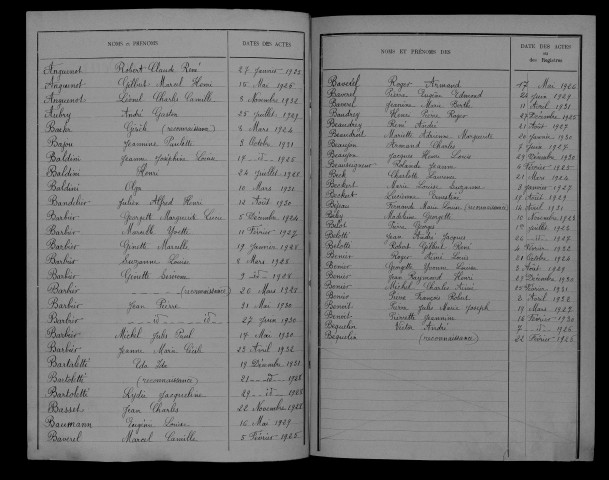 NOMS et PRÉNOMS DATES DES ACTES
Anguenot Robert Claude René 27 Janvier 1923
Anguenot Gilbert Marcel Henri 15 Mai 1926
Anguenot Lionel Charles Camille 3 Novembre 1932
Aubry André Gaston 25 Juillet 1929
(reconnaissance) 2 Mars 1924
Bajou Jeannine Paulette 3 Octobre 1931
Baldini Jeanne Joséphine Louise 14 - d° - 1925
Baldini Henri 24 Juillet 1928
Baldini Olga 10 Mars 1932
Bandelier Julien Alfred Henri 12 Août 1930
Barbier Georgette Marguerite 5 Décembre 1924
Barbier Marcelle Yvette 11 Février 1927
Barbier Ginette Marcelle 19 Janvier 1928
Barbier Suzanne Louise 8 Mars 1928
Barbier Ginette 9 - d° - 1928
Barbier (reconnaissance) 26 Mars 1928
Barbier Jean Pierre 31 Mai 1930
Barbier - d° - - d° - 27 Juin 1930
Barbier Michel Jules Paul 14 Mai 1930
Barbier Jeanne Marie Cécile 22 Avril 1932
Bartoletti Ida 19 Décembre 1931
Bartoletti (reconnaissance) 21 - d° - 1928
Bartoletti Lydie Jacqueline 29 - d° - 1928
Basset Jean Charles 22 Novembre 1928
Baumann Eugénie Louise 16 Mai 1929
Baverel Marcel Camille 5 Février 1925
NOMS ET PRÉNOMS DES DATE DES ACTES
ou
des Registres
Baverel Roger Armand 17 Mai 1926
Baverel Pierre Eugène Edmond 24 Juin 1929
Baverel Jeannine Marie Berthe 11 Avril 1931
Baudrey Henri Pierre Roger 27 Décembre 1925
Beaudrey Rémi André 21 Août 1927
Beaudrey Mariette Adrienne Marguerite 20 Janvier 1930
Beaujon Armand Charles 7 Juin 1927
Beaujon Jacques Henri Louis 29 Décembre 1930
Rolande Jeanne 4 Février 1925
Beck Charlotte Laurence 21 Mars 1924
Beckert Marie Louise Suzanne 3 Janvier 1927
Beckert Lucienne Ernestine 19 Août 1929
Béjean Fernand Marie Louis (reconnaissance) 16 Avril 1931
Béley Madeleine Georgette 10 Novembre 1923
Belot Pierre Georges 17 Juillet 1925
Belotti Jean André Jacques 26 - d° - 1927
Belotti Robert Gilbert René 4 Février 1932
Benier Roger Aimé Louis 21 Octobre 1924
Benier Georgette Yvonne Louise 2 Août 1929
Benier Jean Raymond Henri 27 Décembre 1930
Benier Michel Charles Aimé 15 Février 1931
Benier Pierre François Robert 2 Avril 1932
Benoit Pierre Jules Marie Joseph 19 Mars 1923
Benoit Pierrette Jeannine 16 Février 1930
Béquelin Victor André 7 - d° - 1926
Béquelin (reconnaissance) 22 Février 1926